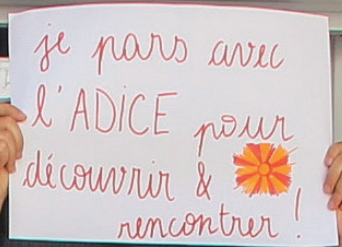 je pars avec
l'ADiCE pour
découvrir &
rencontrer !